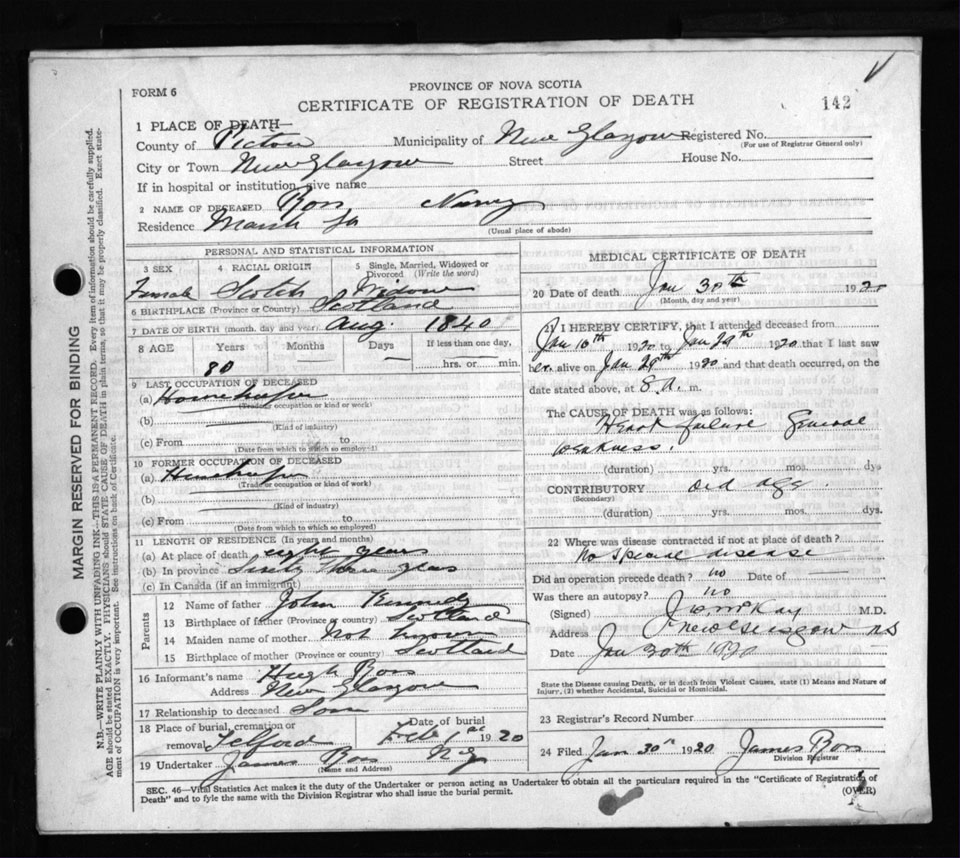 PROVINCE OF NOVA SCOTIA
FORM 6
CERTIFICATE OF REGISTRATION OF DEATH
142
1 PLACE OF DEATH—
County of Pictou Municipality of New Glasgow Registered No.
(For use of Registrar General only)
City or Town New Glasgow Street House No.
If in hospital or institution, give name
2 NAME OF DECEASED Ross Nancy
Residence Marsh St
(Usual place of abode)
PERSONAL AND STATISTICAL INFORMATION
3 SEX 4 RACIAL ORIGIN 5 Single, Married, Widowed or Divorced (Write the word)
Female Scotch Widow
6 BIRTHPLACE (Province or Country) Scotland
7 DATE OF BIRTH (month, day and year) Aug. 1840
8 AGE Years Months Days If less than one day,
80 — — hrs. or min.
9 LAST OCCUPATION OF DECEASED
(a) Housekeeper
(Trade or occupation or kind of work)
(b)
(Kind of industry)
(c) From to
(Date from which to which so employed)
10 FORMER OCCUPATION OF DECEASED
(a) Housekeeper
(Trade or occupation or kind of work)
(b)
(Kind of industry)
(c) From to
(Date from which to which so employed)
11 LENGTH OF RESIDENCE (In years and months)
(a) At place of death eight years
(b) In province Sixty three years
(c) In Canada (if an immigrant)
Parents
12 Name of father John Kennedy
13 Birthplace of father (Province or country) Scotland
14 Maiden name of mother Not known
15 Birthplace of mother (Province or country) Scotland
16 Informant's name Hugh Ross
Address New Glasgow
17 Relationship to deceased Son
18 Place of burial, cremation or removal Telford Date of burial Feb 1st 1920
19 Undertaker James Ross N.G.
(Name and Address)
MEDICAL CERTIFICATE OF DEATH
20 Date of death Jan 30th 1920
(Month, day and year)
21 I HEREBY CERTIFY, that I attended deceased from
Jan 10th 1920 to Jan 29th 1920 that I last saw
her alive on Jan 29th 1920 and that death occurred, on the
date stated above, at 8 a. m.
The CAUSE OF DEATH was as follows:
Heart failure General
weakness.
(duration) yrs. mos. dys
CONTRIBUTORY old age.
(Secondary)
(duration) yrs. mos. dys.
22 Where was disease contracted if not at place of death?
No special disease
Did an operation precede death? no Date of
Was there an autopsy? no
(Signed) McKay M.D.
Address New Glasgow NS
Date Jan 30th 1920
State the Disease causing Death, or in death from Violent Causes, state (1) Means and Nature of
Injury, (2) whether Accidental, Suicidal or Homicidal.
23 Registrar's Record Number
24 Filed Jan 30th 1920 James Ross
Division Registrar
SEC. 46—Vital Statistics Act makes it the duty of the Undertaker or person acting as Undertaker to obtain all the particulars required in the "Certificate of Registration of
Death" and to fyle the same with the Division Registrar who shall issue the burial permit.
(OVER)
MARGIN RESERVED FOR BINDING
N.B.—WRITE PLAINLY WITH UNFADING INK—THIS IS A PERMANENT RECORD. Every item of information should be carefully supplied.
AGE should be stated EXACTLY. PHYSICIANS should STATE CAUSE OF DEATH in plain terms, so that it may be properly classified. Exact state-
ment of OCCUPATION is very important. See instructions on back of Certificate.